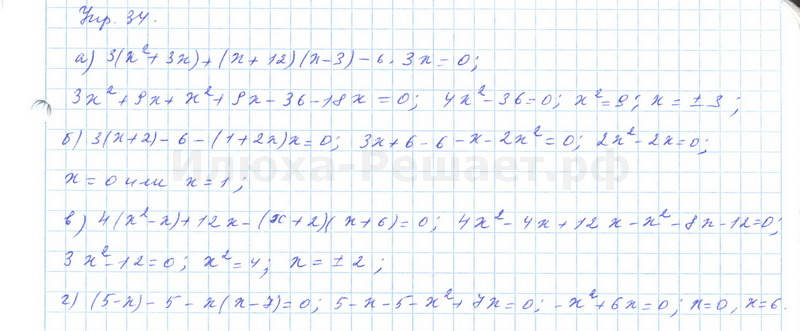 Упр. 34.
а) 3(x²+3x)+(x+12)(x-3)-6·3x=0;
3x²+9x+x²+9x-36-18x=0; 4x²-36=0; x²=9; x=±3;
б) 3(x+2)-6-(1+2x)x=0; 3x+6-6-x-2x²=0; 2x²-2x=0;
Илюха-Решает.рф
x=0 или x=1;
в) 4(x²-x)+12x-(x+2)(x+6)=0; 4x²-4x+12x-x²-8x-12=0;
3x²-12=0; x²=4; x=±2;
г) (5-x)-5-x(x-7)=0; 5-x-5-x²+7x=0; -x²+6x=0; x=0, x=6.